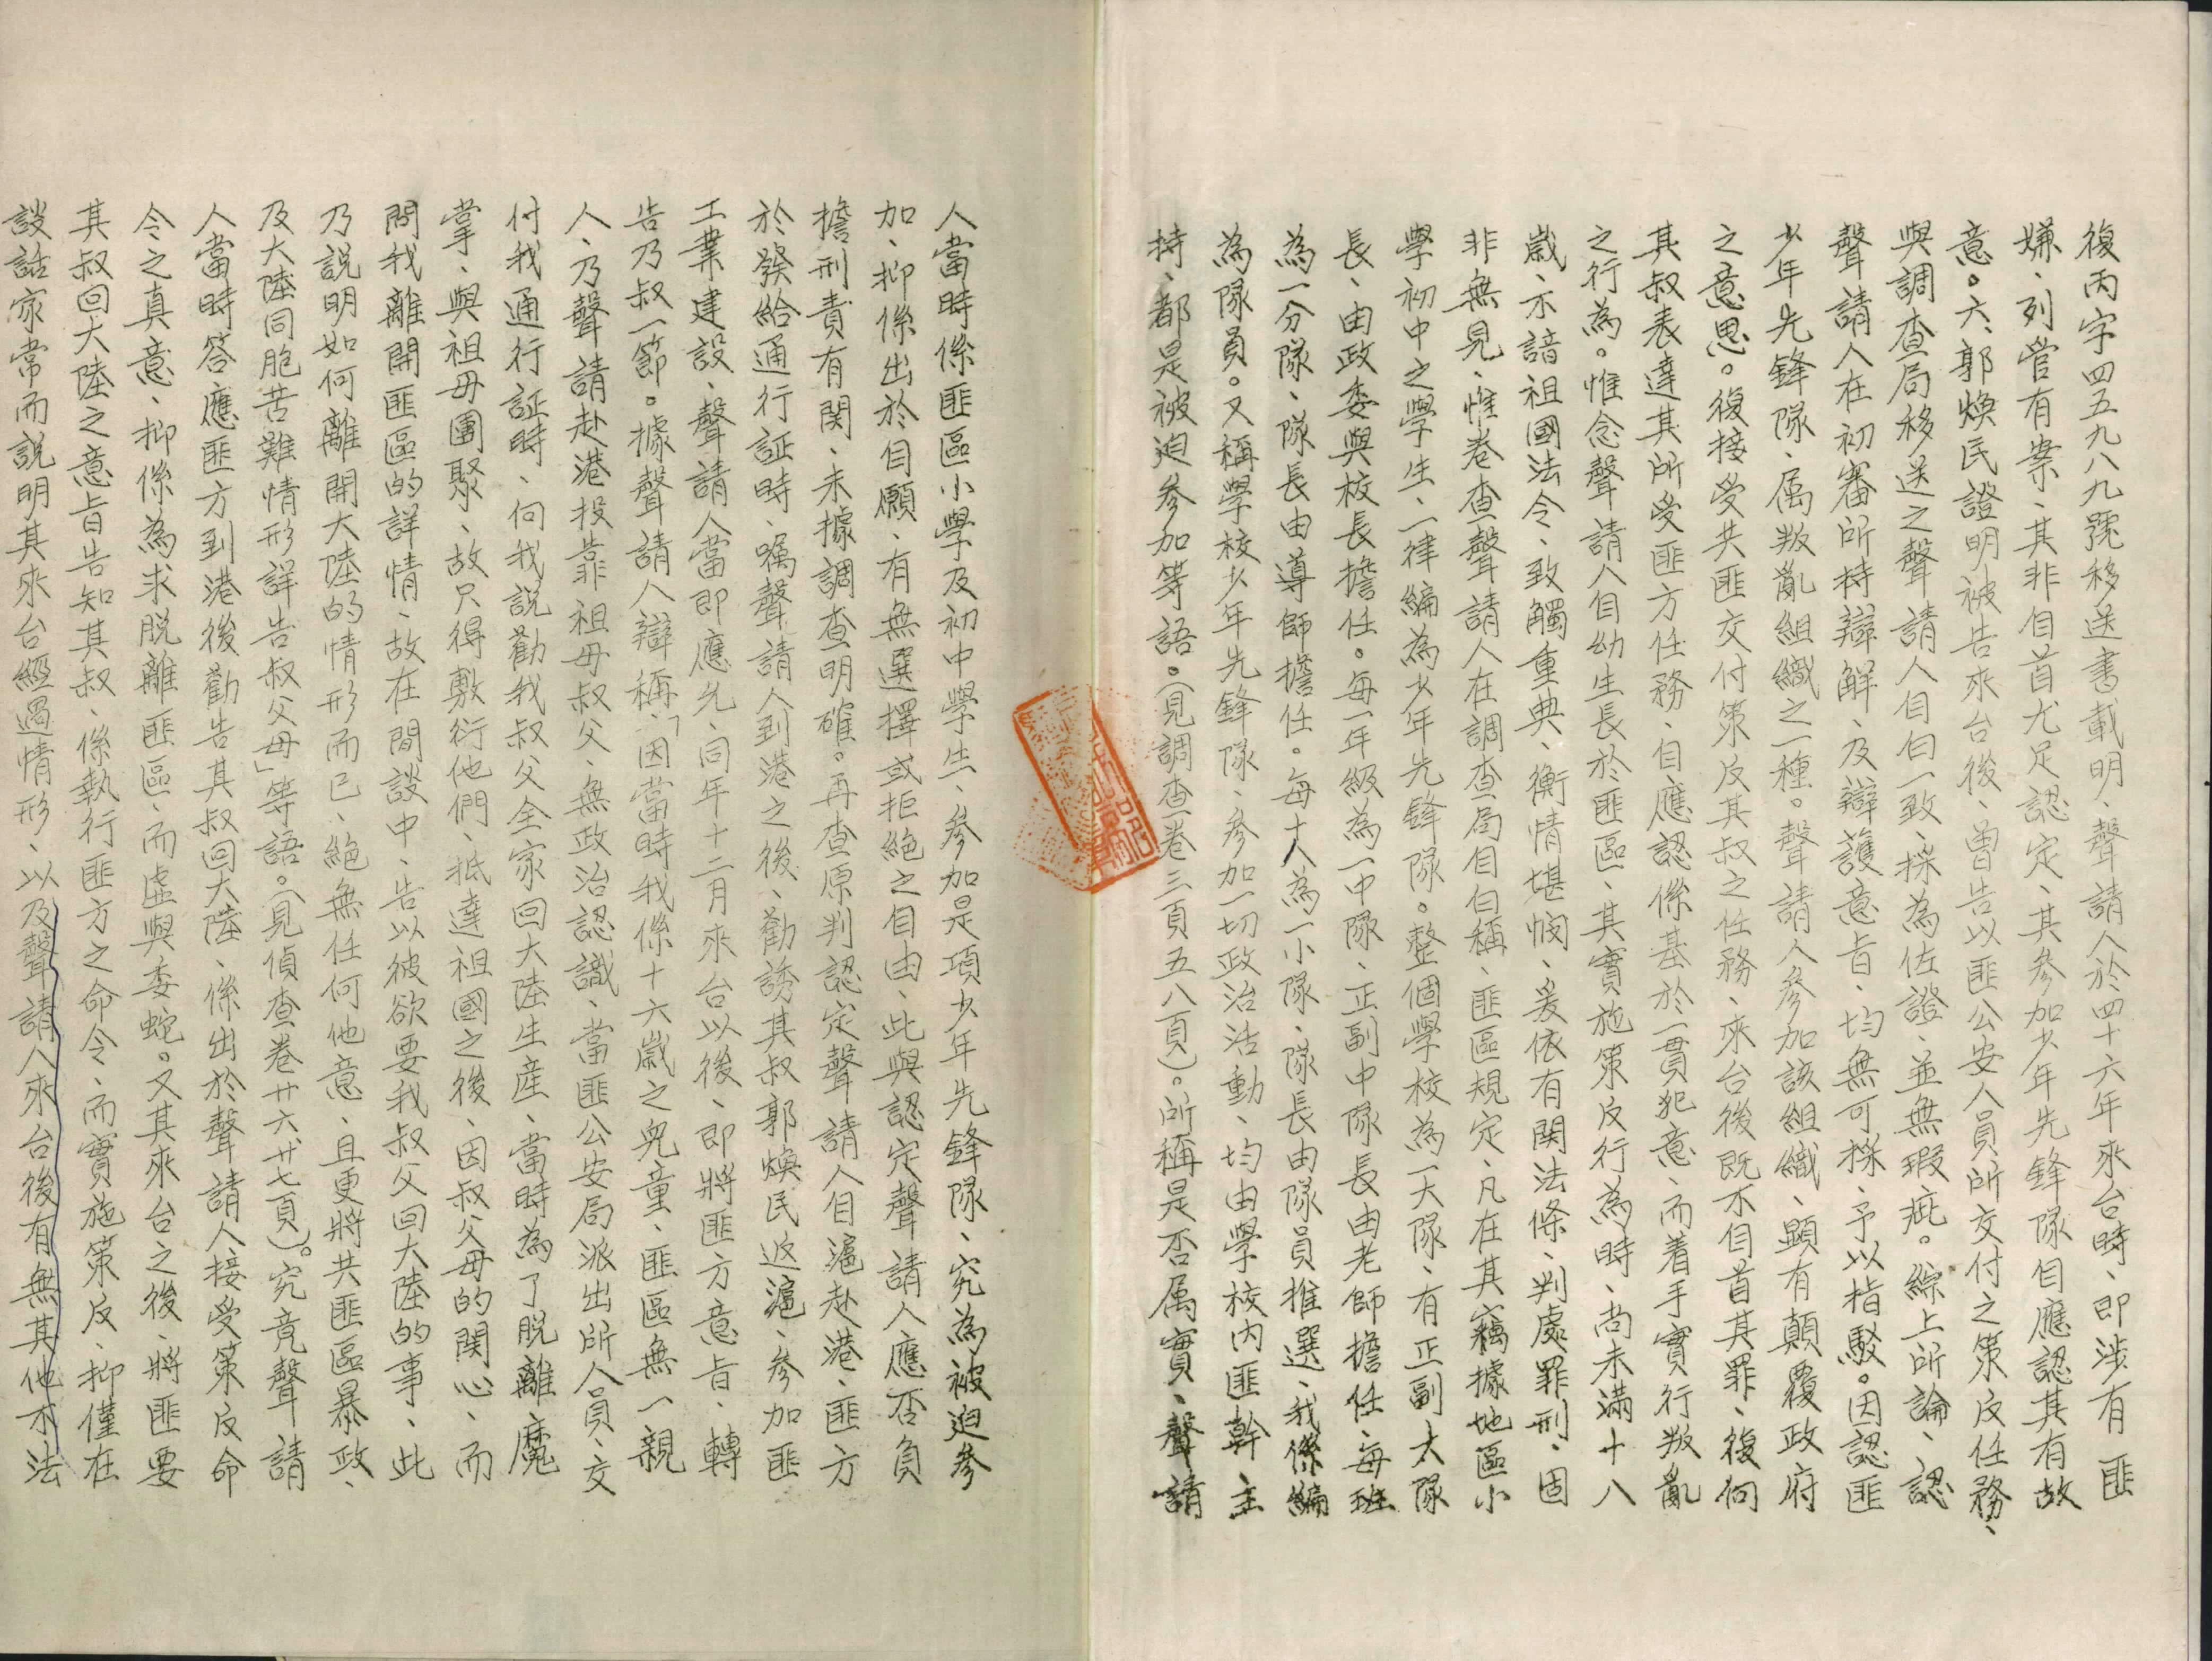 復丙字四五九八九號移送書載明、聲請人於四十六年來台時、即涉有匪
嫌、列管有案、其非自首尤足認定、其參加少年先鋒隊自應認其有故
意。六、郭煥民證明被告來台後、曾告以匪公安人員所交付之策反任務、
與調查局移送之聲請人自白一致、採為佐證、並無瑕疵。綜上所論、認
聲請人在初審所持辯解、及辯護意旨、均無可採、予以指駁。因認匪
少年先鋒隊、属叛亂組織之一種。聲請人參加該組織、顯有顛覆政府
之意思。復接受共匪交付策反其叔之任務、來台後既不自首其罪、復向
其叔表達其所受匪方任務、自應認係基於一貫犯意、而着手實行叛亂
之行為。惟念聲請人自幼生長於匪區、其實施策反行為時、尚未滿十八
歲、不諳祖國法令、致觸重典、衡情堪憫、爰依有関法條、判處罪刑、固
非無見、惟卷查聲請人在調查局自白稱、匪區規定、凡在其竊據地區小
學初中之學生、一律編為少年先鋒隊。整個學校為一大隊、有正副大隊
長、由政委與校長擔任。每一年級為一中隊、正副中隊長由老師擔任、每班
為一分隊、隊長由導師擔任。每十人為一小隊、隊長由隊員推選、我係編
為隊員。又稱學校少年先鋒隊、參加一切政治活動、均由學校內匪幹主
持、都是被迫參加等語。（見調查卷三頁五八頁）。所稱是否属實、聲請
人當時係匪區小學及初中學生、參加是項少年先鋒隊、究為被迫參
加、抑係出於自願、有無選擇或拒絕之自由、此與認定聲請人應否負
擔刑責有関、未據調查明確。再查原判認定聲請人自滬赴港、匪方
於發給通行証時、囑聲請人到港之後、勸誘其叔郭煥民返滬、參加匪
工業建設、聲請人當即應允、同年十二月來台以後、即將匪方意旨、轉
告乃叔一節。據聲請人辯稱、「因當時我係十六歲之兒童、匪區無一親
人、乃聲請赴港投靠祖母叔父、無政治認識、當匪公安局派出所人員、交
付我通行証時、向我說勸我叔父全家回大陸生産、當時為了脫離魔
掌、與祖母團聚、故只得敷衍他們、抵達祖國之後、因叔父母的関心、而
問我離開匪區的詳情、故在閒談中、告以彼欲要我叔父回大陸的事、此
乃說明如何離開大陸的情形而已、絕無任何他意、且更將共匪區暴政、
及大陸同胞苦難情形詳告叔父母」等語。（見偵查卷廿六廿七頁）。究竟聲請
人當時答應匪方到港後勸告其叔回大陸、係出於聲請人接受策反命
令之真意、抑係為求脫離匪區、而虛與委蛇。又其來台之後、將匪要
其叔回大陸之意旨告知其叔、係執行匪方之命令、而實施策反、抑僅在
談話家常而說明其來台經過情形、以及聲請人來台後有無其他不法